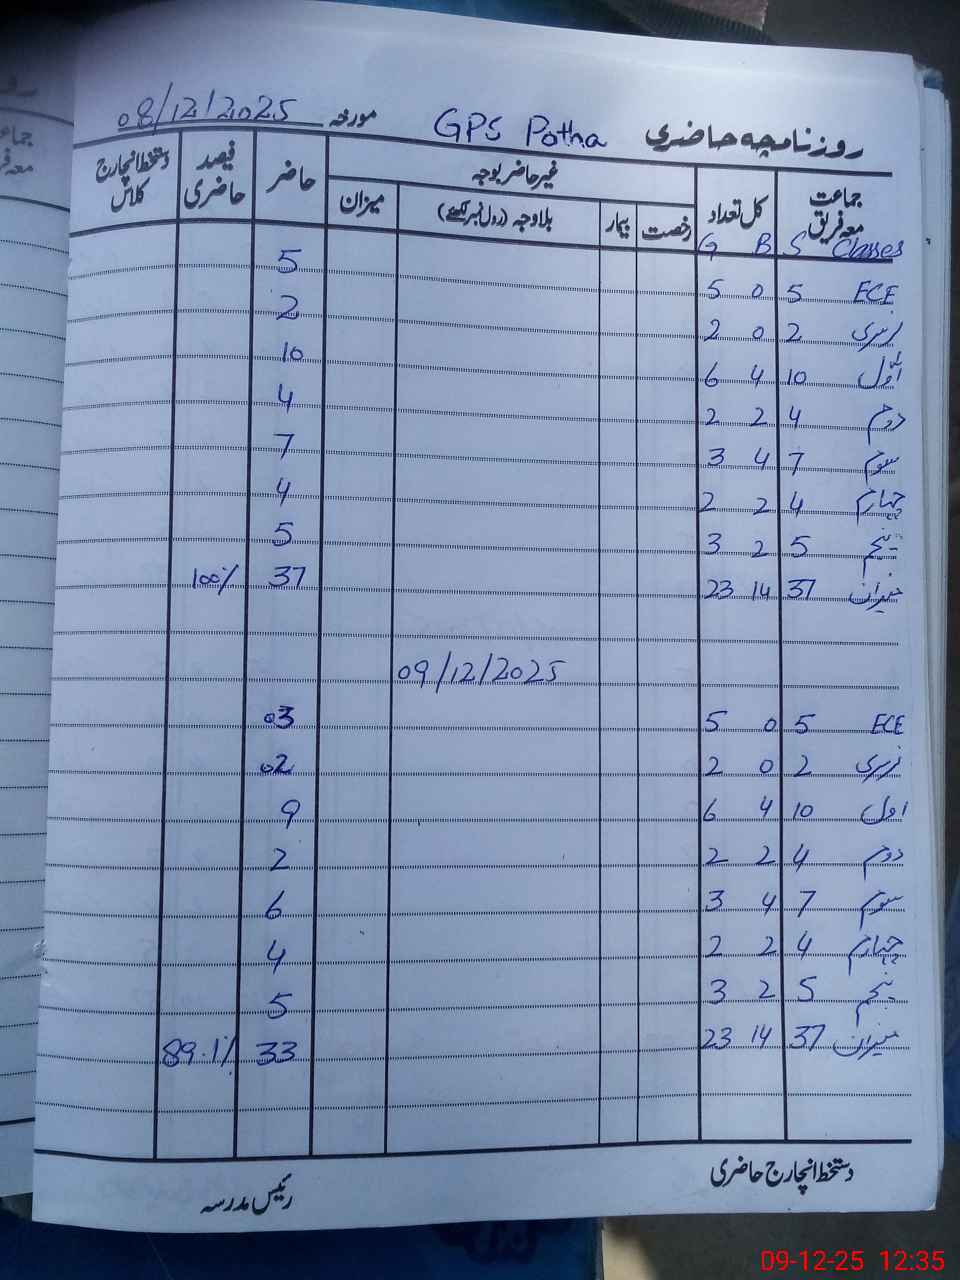 روزنامچہ حاضری GPS Potha مورخہ 08/12/2025
جماعت معہ فریق کل تعداد غیر حاضر بوجہ حاضر فیصد حاضری دستخط انچارج کلاس
رخصت بیمار بلاوجہ (رول نمبر لکھئے) میزان
Classes S B G
ECE 5 0 5 5
نرسری 2 0 2 2
اوّل 10 4 6 10
دوم 4 2 2 4
سوم 7 4 3 7
چہارم 4 2 2 4
پنجم 5 2 3 5
میزان 37 14 23 37 100%
09/12/2025
ECE 5 0 5 03
نرسری 2 0 2 02
اول 10 4 6 9
دوم 4 2 2 2
سوم 7 4 3 6
چہارم 4 2 2 4
پنجم 5 2 3 5
میزان 37 14 23 33 89.1%
دستخط انچارج حاضری رئیس مدرسہ
09-12-25 12:35